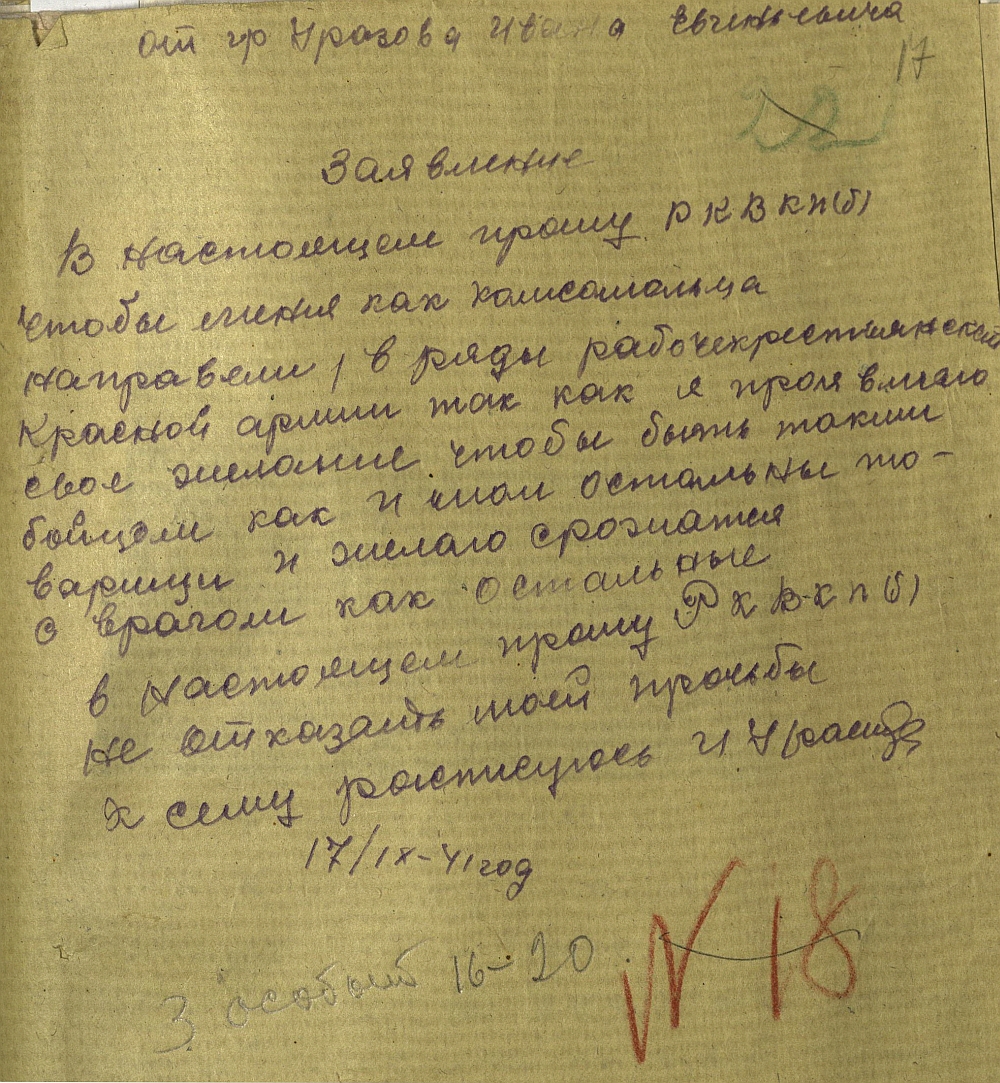 от гр Уразова Ивана Евгеньевича
17
22
Заявление
В настоящем прошу РК ВКП(б)
чтобы меня как комсомольца
направели, в ряды рабочекрестьянской
Красной армии так как я проявляю
свое желание чтобы быть таким
бойцом как и мои остальны то-
варищи и желаю срожатся
с врагом как остальные
в настоящем прошу РК ВКП(б)
не отказать моей прозьбы
К сему распишуюсь И Уразов
17/IX-41 год
3 особый 16-20.
N 18